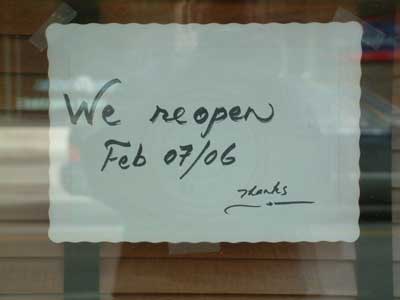 We reopen
Feb 07/06
Thanks